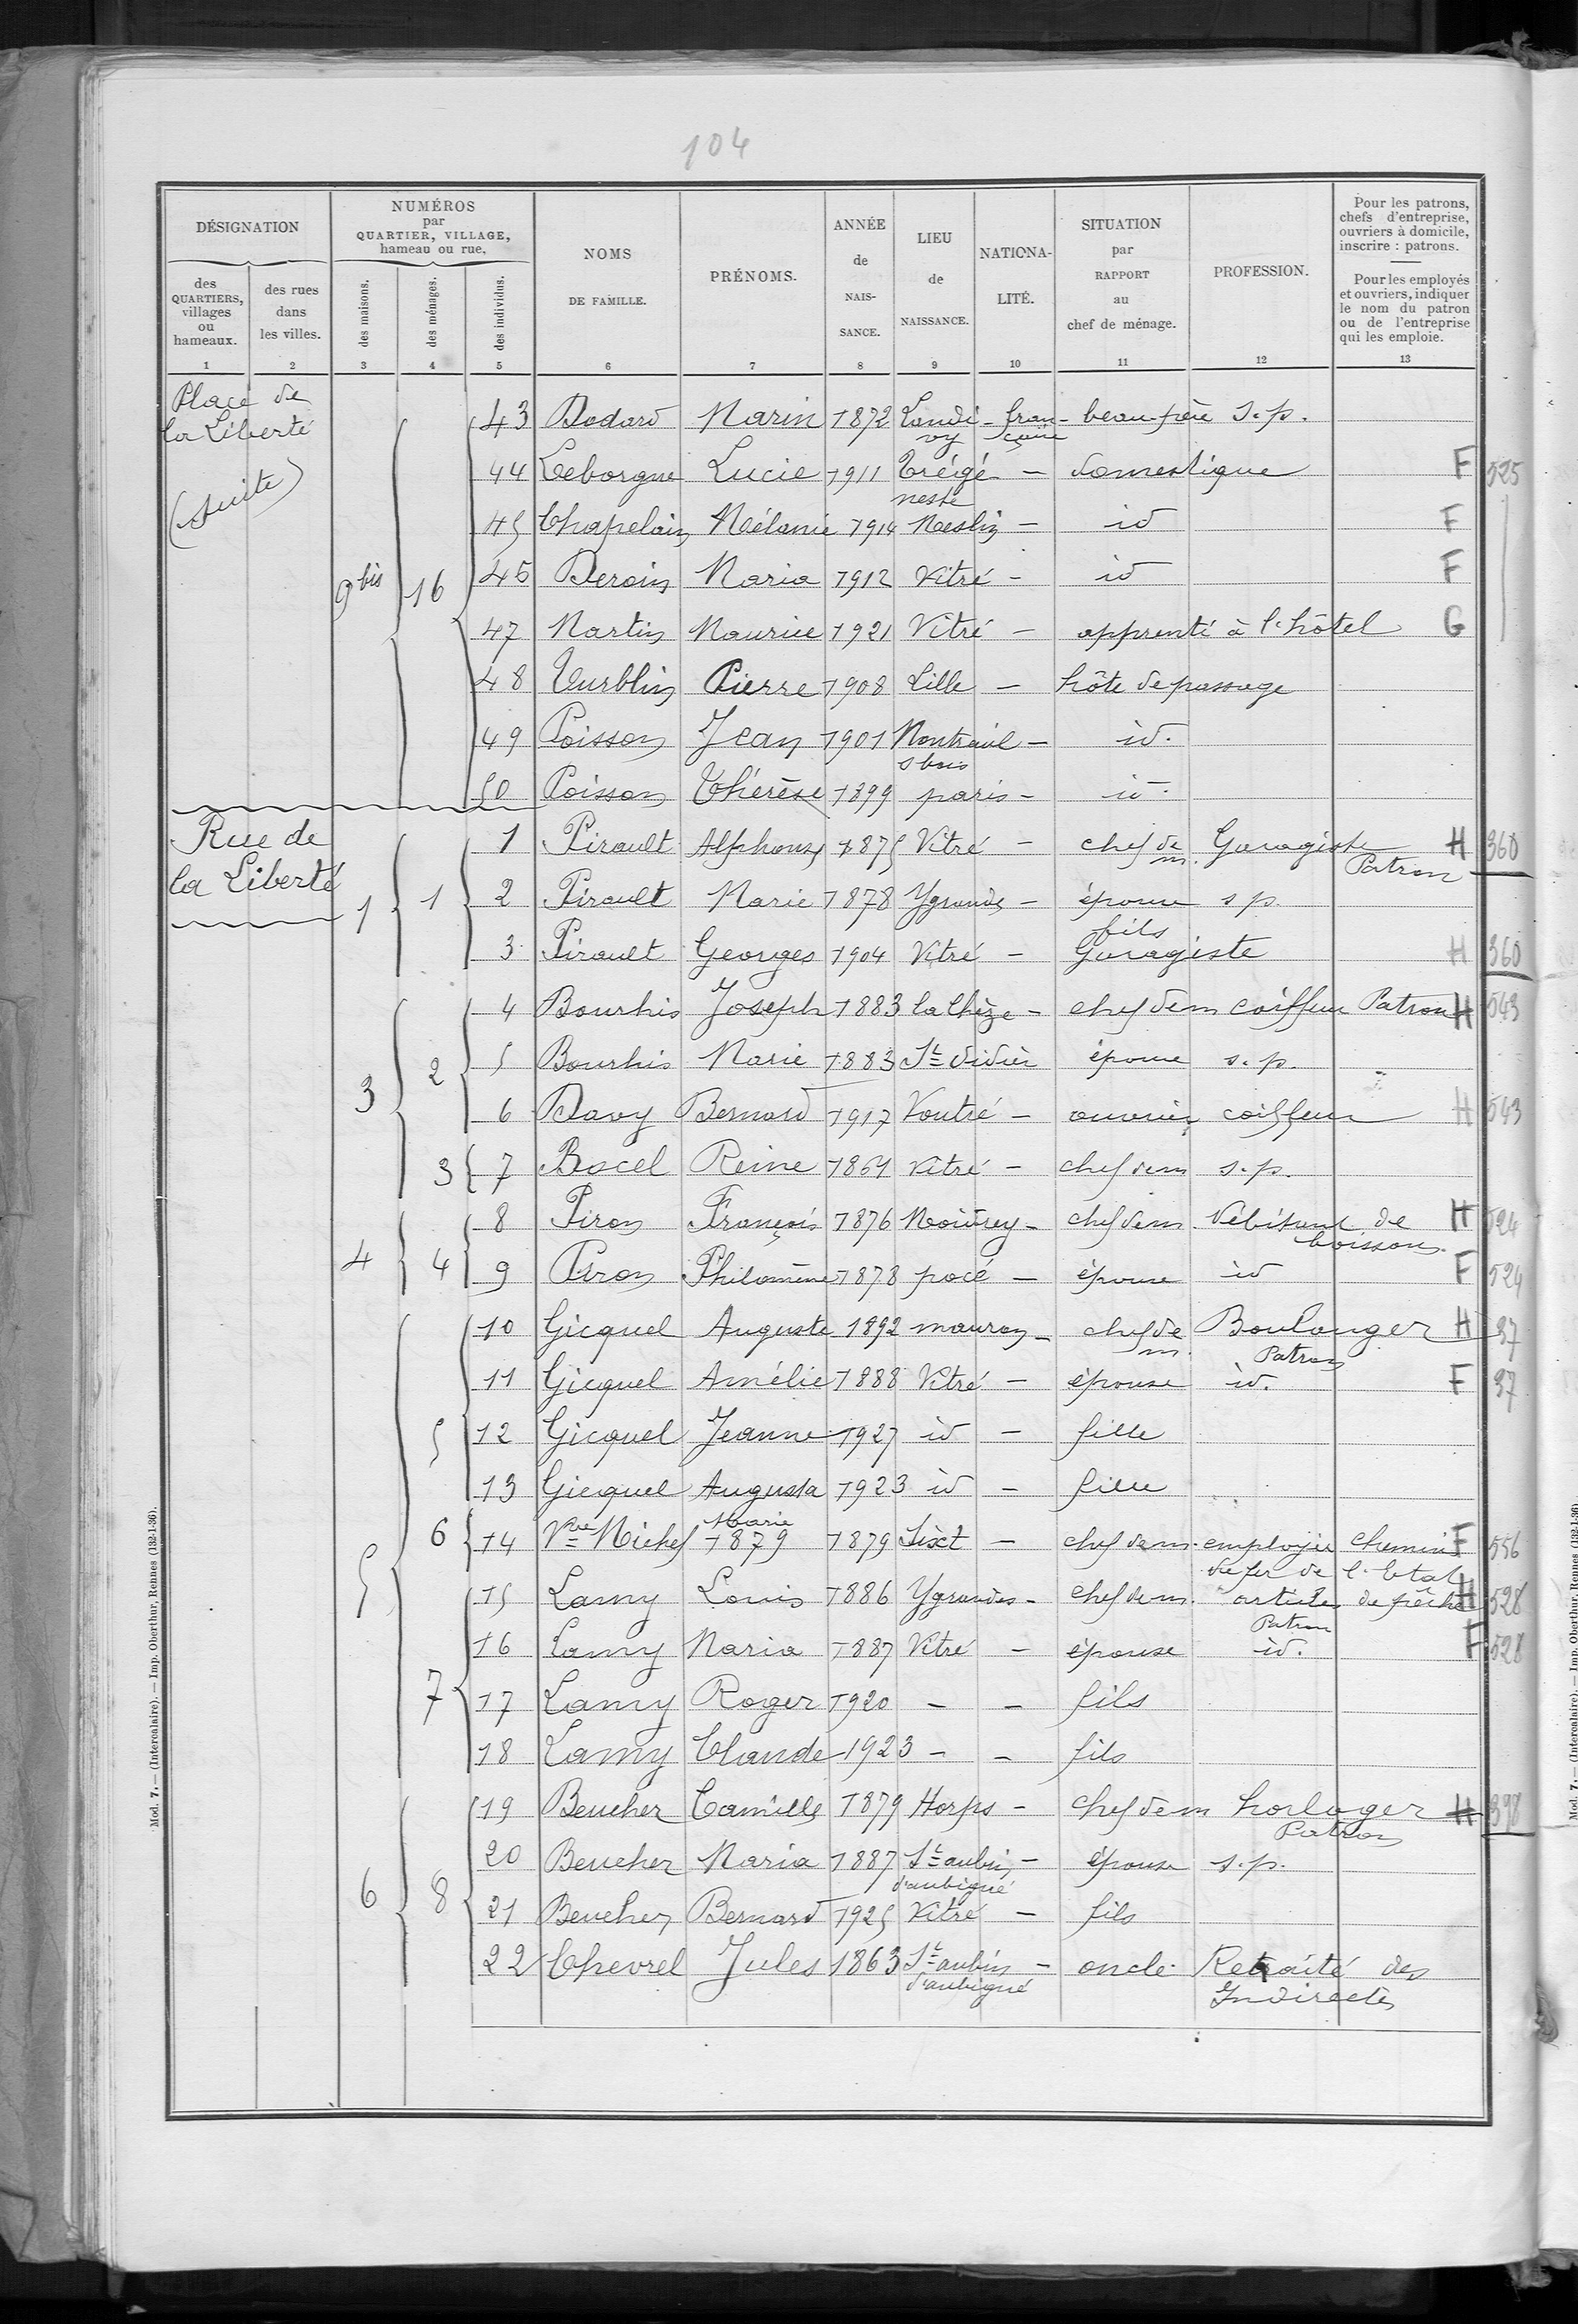 104
DÉSIGNATION
NUMÉROS
par
QUARTIER, VILLAGE,
hameau ou rue.
NOMS
DE FAMILLE.
PRÉNOMS.
ANNÉE
de
NAIS-
SANCE.
LIEU
de
NAISSANCE.
NATIONA-
LITÉ.
SITUATION
par
RAPPORT
au
chef de ménage.
PROFESSION.
Pour les patrons,
chefs d'entreprise,
ouvriers à domicile,
inscrire : patrons.
Pour les employés
et ouvriers, indiquer
le nom du patron
ou de l'entreprise
qui les emploie.
des
QUARTIERS,
villages
ou
hameaux.
des rues
dans
les villes.
des maisons.
des ménages.
des individus.
1 2 3 4 5 6 7 8 9 10 11 12 13
Place de
la Liberté
(suite)
9 bis 16
43 Dodard Marin 1872 Landivy française beau-père s.p.
44 Leborgne Lucie 1911 Trégéneste - domestique F 525
45 Chapelain Mélanie 1914 Meslin - id F
46 Deroin Maria 1912 Vitré - id F
47 Martin Maurice 1921 Vitré - apprenti à l'hôtel G
48 Pierre 1908 Lille - hôte de passage
49 Poisson Jean 1901 Montreuil s bois - id.
50 Poisson Thérèse 1899 paris - id.
Rue de
la Liberté
1 1
1 Pirault Alphonse 1875 Vitré - chef de m. Garagiste Patron H 360
2 Pirault Marie 1878 Ygrandes - épouse s p.
3 Pirault Georges 1904 Vitré - fils Garagiste H 360
3 2
4 Bourhis Joseph 1883 la Chèze - chef de m coiffeur Patron H 543
5 Bourhis Marie 1883 St Didier épouse s.p.
6 Davy Bernard 1917 Voutré - ouvrier coiffeur H 543
3
7 Bocel Reine 1861 Vitré - chef de m s.p.
4 4
8 Piron François 1876 - chef de m. Débitant de boissons H 524
9 Piron Philomène 1878 pocé - épouse id F 524
5 5
10 Gicquel Auguste 1892 mauron - chef de m. Boulanger Patron H 37
11 Gicquel Amélie 1888 Vitré - épouse id. F 37
12 Gicquel Jeanne 1927 id - fille
13 Gicquel Augusta 1923 id - fille
6
14 Vve Michel Marie 1879 1879 Sixt - chef de m. employée chemins de fer de l'Etat F 556
7
15 Lamy Louis 1886 Ygrandes - chef de m. articles de pêche Patron H 528
16 Lamy Maria 1887 Vitré - épouse id. F 528
17 Lamy Roger 1920 - - fils
18 Lamy Claude 1923 - - fils
6 8
19 Beucher Camille 1879 Horps - chef de m horloger Patron H 398
20 Beucher Maria 1887 St aubin d'aubigné - épouse s.p.
21 Beucher Bernard 1925 Vitré - fils
22 Chevrel Jules 1863 St aubin d'aubigné - oncle Retraité des Indirectes
Mod. 7. — (Intercalaire). — Imp. Oberthur, Rennes (132-1-36).
Mod. 7. — (Intercalaire). — Imp. Oberthur, Rennes (132-1-36).